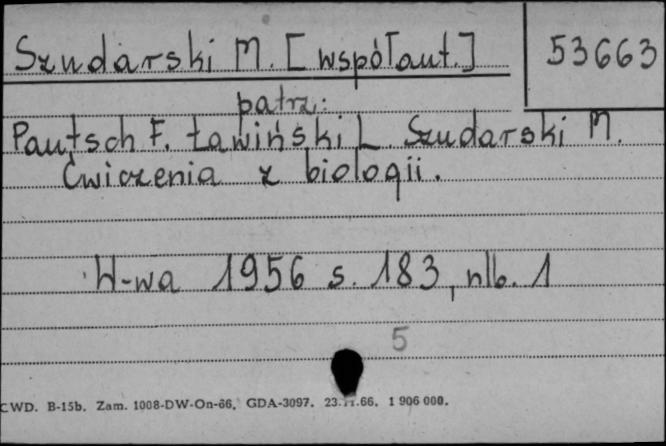 Szudarski M. [współaut.] 53663
patrz:
Pautsch F. Ławiński L. Szudarski M.
Ćwiczenia z biologii.
W-wa 1956 s. 183, nlb. 1
5
CWD. B-15b. Zam. 1008-DW-On-66. GDA-3097. 23.11.66. 1 906 000.